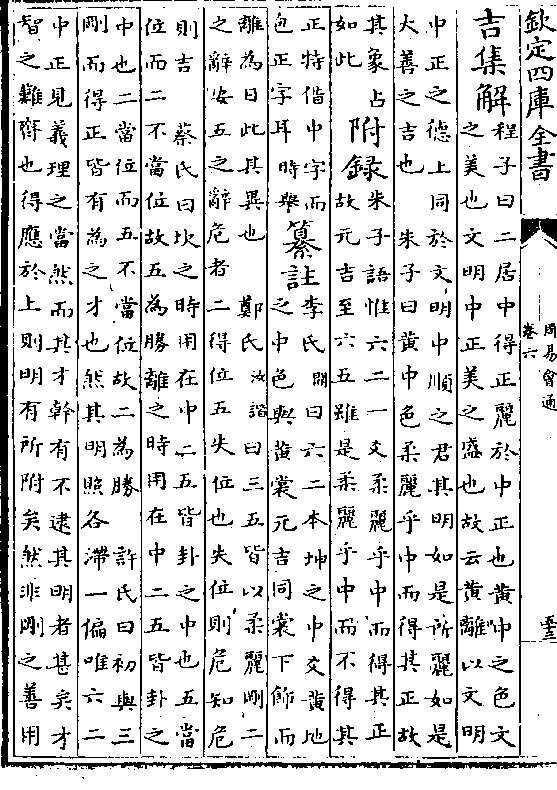 欽定四庫全書
周易會通
卷六
吉集解
程子曰二居中得正麗於中正也黄中之色文
之美也文明中正美之盛也故云黄離以文明
中正之德上同於文明中順之君其明如是所麗如是
大善之吉也　朱子曰黄中色柔麗乎中而得其正故
其象占
如此
附録
朱子語惟六二一爻柔麗乎中而得其正
故元吉至六五雖是柔麗乎中而不得其
正特借中字而
包正字耳時舉
纂註
李氏開曰六二本坤之中爻黄地
之中色與黄裳元吉同裳下飾而
離為日此其異也　鄭氏汝諧曰三五皆以柔麗剛二
之辭安五之辭危者二得位五失位也失位則危知危
則吉　蔡氏曰坎之時用在中二五皆卦之中也五當
位而二不當位故五為勝離之時用在中二五皆卦之
中也二當位而五不當位故二為勝　許氏曰初與三
剛而得正皆有為之才也然其明照各滯一偏唯六二
中正見義理之當然而其才幹有不逮其明者甚矣才
智之難齊也得應於上則明有所附矣然非剛之善用